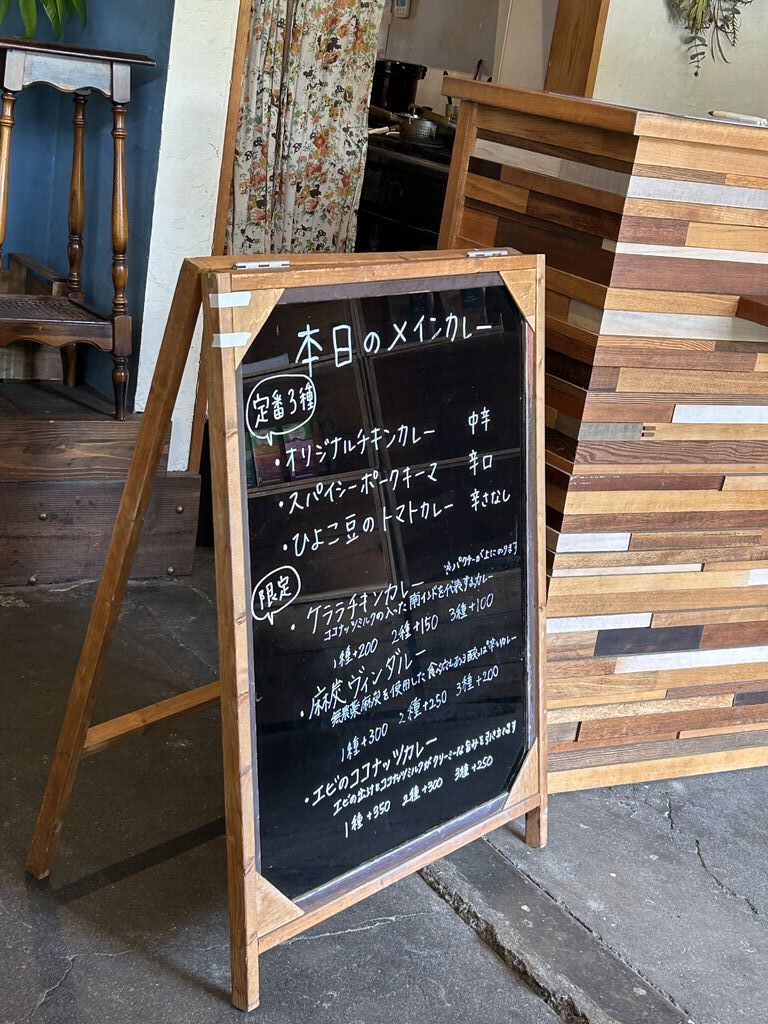 本日のメインカレー
定番3種
・オリジナルチキンカレー 中辛
・スパイシーポークキーマ 辛口
・ひよこ豆のトマトカレー 辛さなし
限定
※パクチーが上にのります
・ケララチキンカレー
ココナッツミルクの入った南インドを代表するカレー
1種+200 2種+150 3種+100
・麻炭ヴィンダルー
無農薬麻炭を使用した
1種+300 2種+250 3種+200
・エビのココナッツカレー
エビの出汁とココナッツミルクがクリーミーな旨みを引き出します
1種+350 2種+300 3種+250